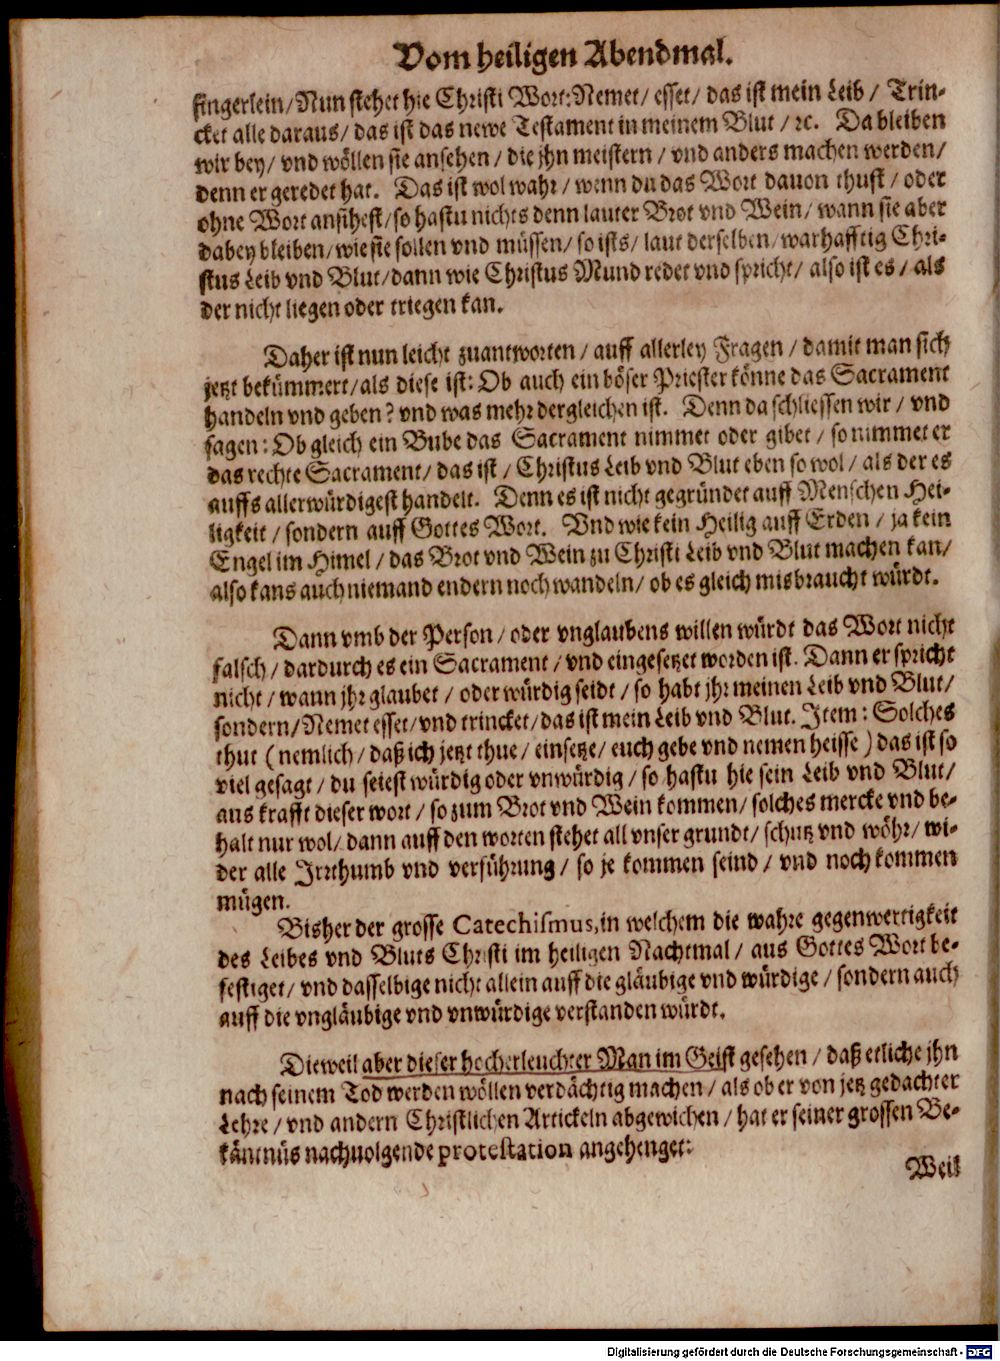 Vom heiligen Abendmal.
fingerlein/Nun stehet hie Christi Wort:Nemet/ esset/ das ist mein Leib / Trin-
cket alle daraus/ das ist das newe Testament in meinem Blut / ꝛc. Da bleiben
wir bey/ vnd wöllen sie ansehen / die jhn meistern / vnd anders machen werden/
denn er geredet hat. Das ist wol wahr / wenn du das Wort dauon thust / oder
ohne Wort ansihest/so hastu nichts denn lauter Brot vnd Wein/ wann sie aber
dabey bleiben/ wie sie sollen vnd müssen/ so ists/ laut derselben/ warhafftig Chri-
stus Leib vnd Blut/dann wie Christus Mund redet vnd spricht/ also ist es / als
der nicht liegen oder triegen kan.
Daher ist nun leicht zuantworten / auff allerley Fragen / damit man sich
jetzt bekümmert/als diese ist: Ob auch ein böser Priester könne das Sacrament
handeln vnd geben? vnd was mehr dergleichen ist. Denn da schliessen wir / vnd
sagen: Ob gleich ein Bube das Sacrament nimmet oder gibet / so nimmet er
das rechte Sacrament/ das ist / Christus Leib vnd Blut eben so wol / als der es
auffs allerwürdigest handelt. Denn es ist nicht gegründet auff Menschen Hei-
ligkeit / sondern auff Gottes Wort. Vnd wie kein Heilig auff Erden / ja kein
Engel im Himel / das Brot vnd Wein zu Christi Leib vnd Blut machen kan/
also kans auch niemand endern noch wandeln/ ob es gleich misbraucht würdt.
Dann vmb der Person / oder vnglaubens willen würdt das Wort nicht
falsch / dardurch es ein Sacrament / vnd eingesetzet worden ist. Dann er spricht
nicht / wann jhr glaubet / oder würdig seidt / so habt jhr meinen Leib vnd Blut/
sondern/Nemet esset/vnd trincket/das ist mein Leib vnd Blut. Item: Solches
thut (nemlich / daß ich jetzt thue / einsetze/ euch gebe vnd nemen heisse) das ist so
viel gesagt / du seiest würdig oder vnwürdig / so hastu hie sein Leib vnd Blut/
aus krafft dieser wort / so zum Brot vnd Wein kommen/ solches mercke vnd be-
halt nur wol/ dann auff den worten stehet all vnser grundt/ schutz vnd wöhr/ wi-
der alle Irrthumb vnd verführung / so je kommen seind / vnd noch kommen
mügen.
Bisher der grosse Catechismus,in welchem die wahre gegenwertigkeit
des Leibes vnd Bluts Christi im heiligen Nachtmal / aus Gottes Wort be-
festiget/ vnd dasselbige nicht allein auff die gläubige vnd würdige / sondern auch
auff die vngläubige vnd vnwürdige verstanden würdt.
Dieweil aber dieser hocherleuchter Man im Geist gesehen / daß etliche jhn
nach seinem Tod werden wöllen verdächtig machen / als ob er von jetz gedachter
Lehre / vnd andern Christlichen Artickeln abgewichen / hat er seiner grossen Be-
käntnüs nachuolgende protestation angehenget:
Weil
Digitalisierung gefördert durch die Deutsche Forschungsgemeinschaft - DFG